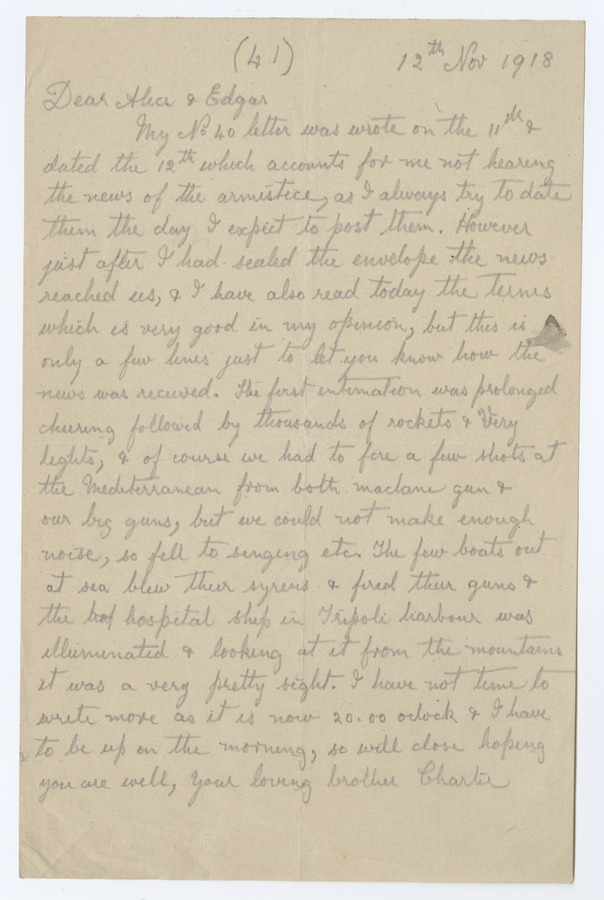 (41) 12th Nov 1918
Dear Alice & Edgar
My No 40 letter was wrote on the 11th &
dated the 12th which accounts for me not hearing
the news of the armistice, as I always try to date
them the day I expect to post them. However
just after I had sealed the envelope the news
reached us, & I have also read today the terms
which is very good in my opinion, but this is
only a few lines just to let you know how the
news was received. The first intimation was prolonged
cheering followed by thousands of rockets & Very
lights, & of course we had to fire a few shots at
the Mediterranean from both machine gun &
our big guns, but we could not make enough
noise, so fell to singing etc. The few boats out
at sea blew their syrens & fired their guns &
the hospital ship in Tripoli harbour was
illuminated & looking at it from the mountains
it was a very pretty sight. I have not time to
write more as it is now 20.00 oclock & I have
to be up on the morning, so will close hoping
you are well, Your loving brother Charlie